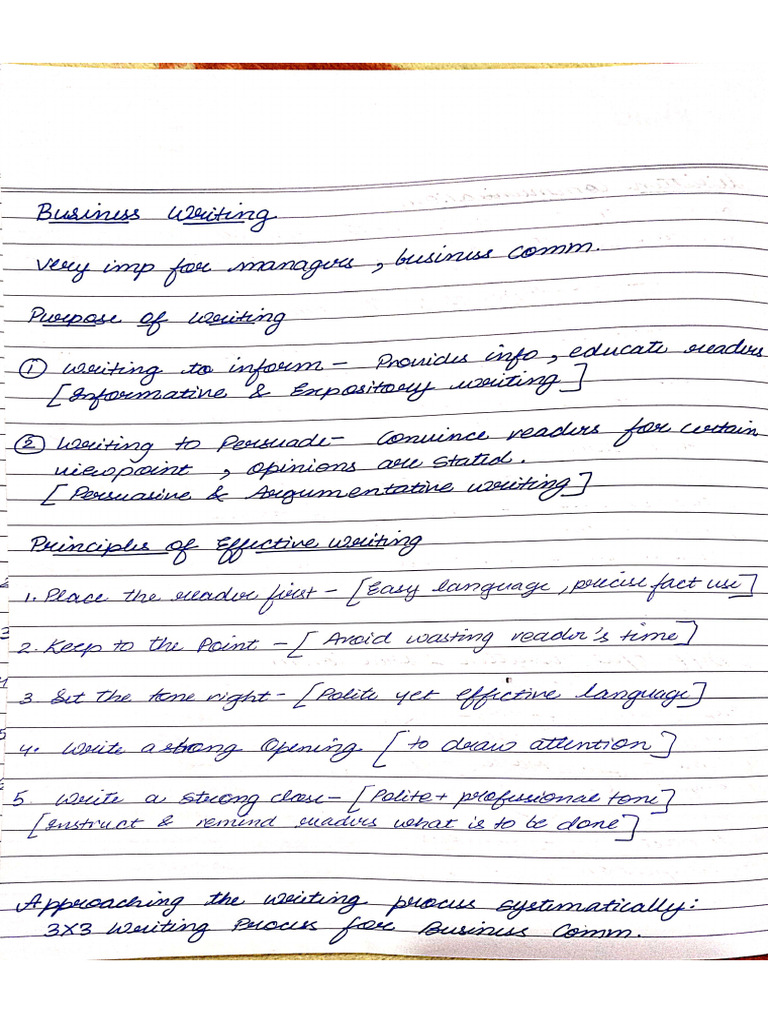 Business Writing
Very imp for managers, business comm.
Purpose of Writing
① Writing to inform - Provides info, educate readers
[Informative & Expository writing]
② Writing to Persuade - Convince readers for certain
viewpoint, opinions are stated.
[Persuasive & Argumentative writing]
Principles of Effective Writing
1. Place the reader first - [Easy language, precise fact use]
2. Keep to the Point - [Avoid wasting reader's time]
3 Set the tone right - [Polite yet effective language]
4. Write a strong Opening [to draw attention]
5. Write a strong close - [Polite + professional tone]
[Instruct & remind readers what is to be done]
Approaching the writing process systematically:
3x3 Writing Process for Business Comm.